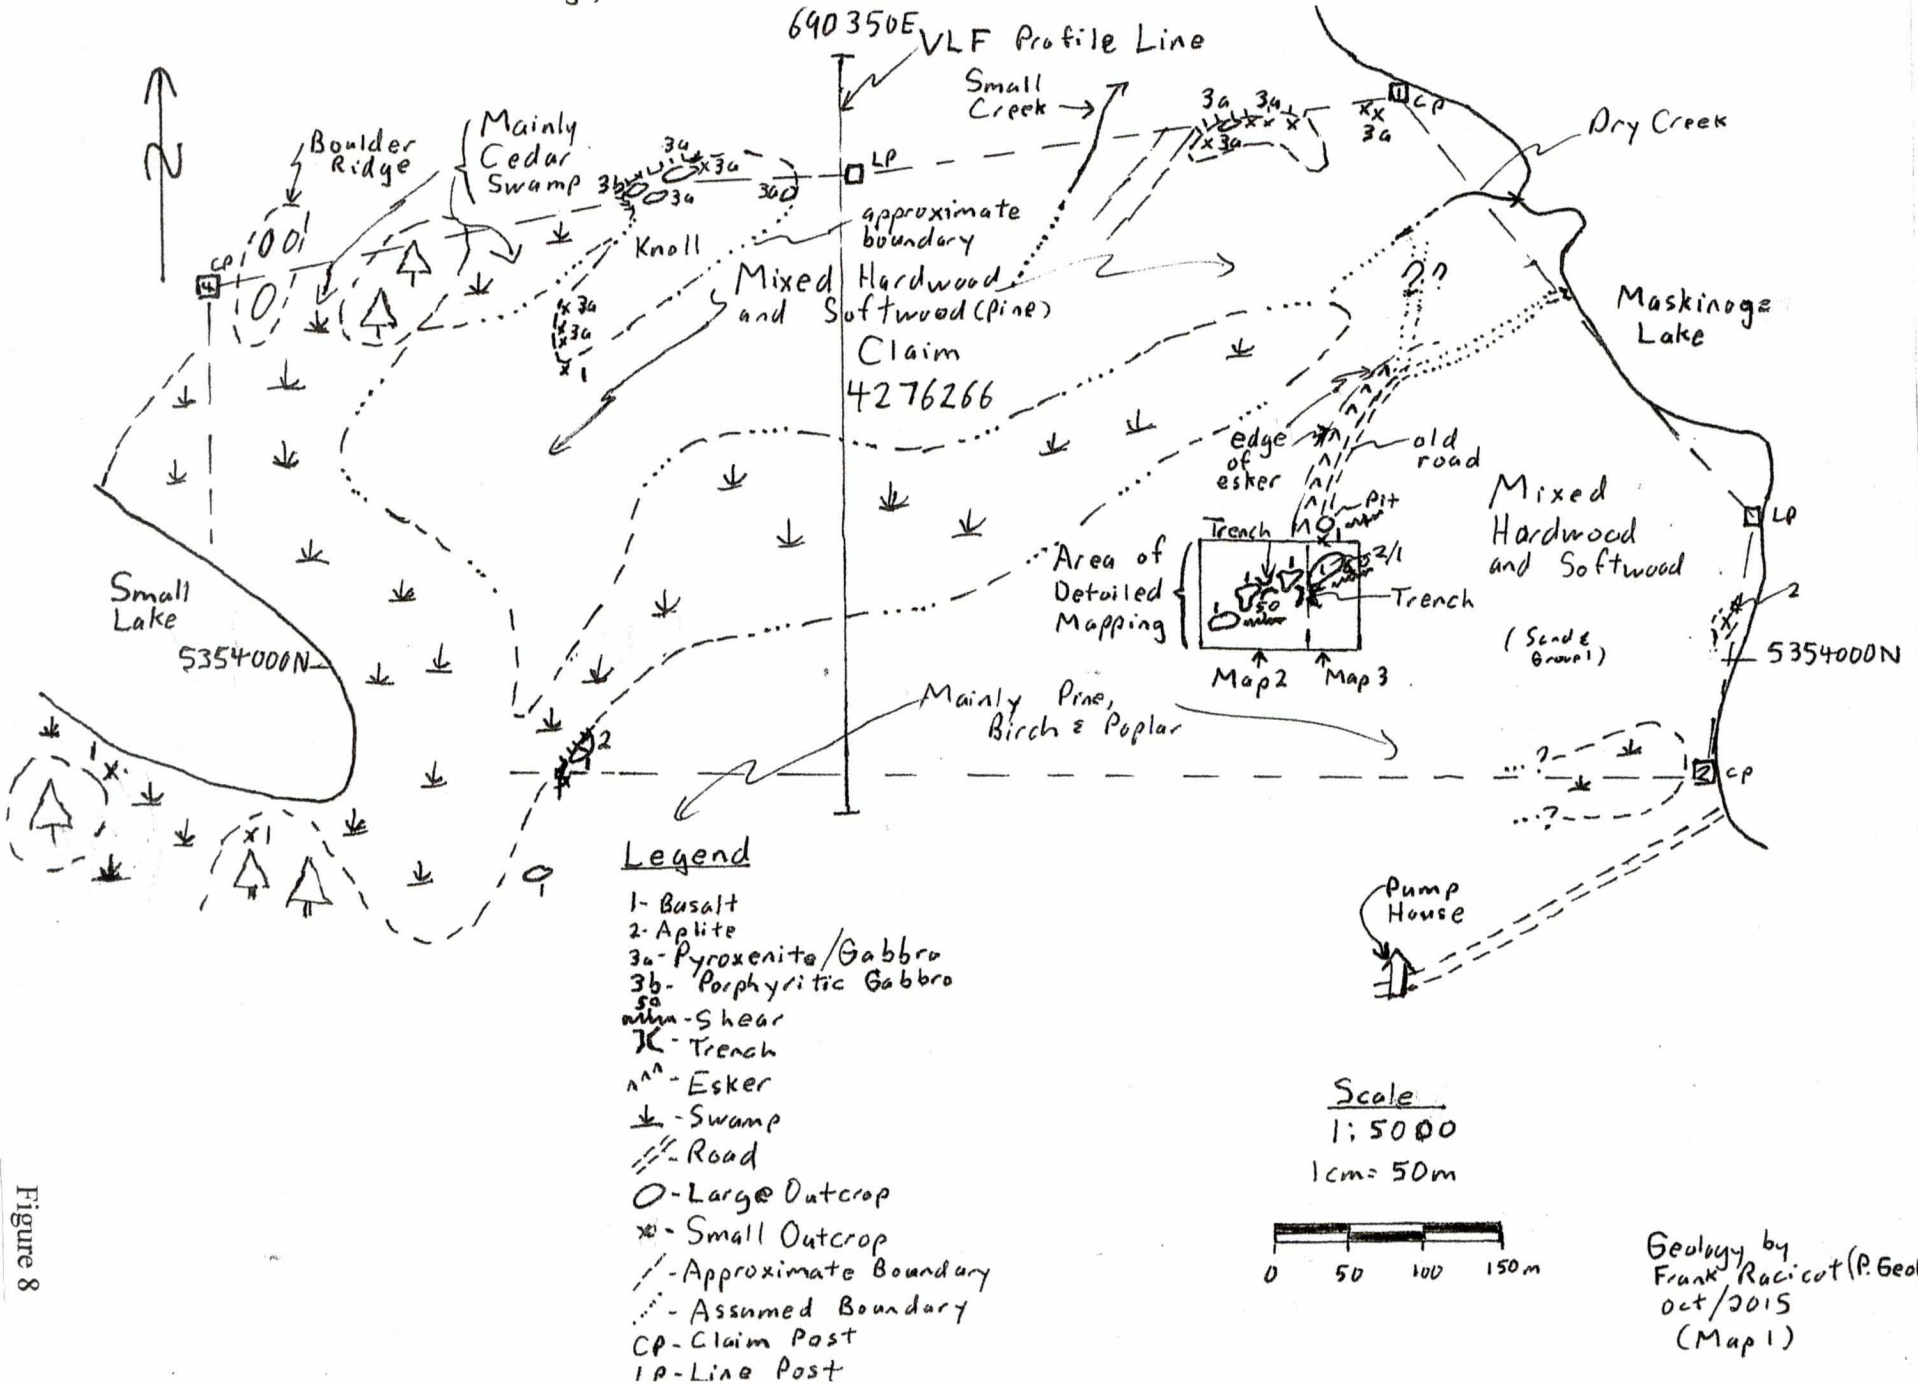 690350E
VLF Profile Line
Small
Creek
3a
3a
1
CP
xx
3a
x3a
Dry Creek
N
Boulder
Ridge
Mainly
Cedar
Swamp
3a
x3a
3b
3a
3a
LP
Knoll
approximate
boundary
CP
4
Mixed Hardwood
and Softwood (Pine)
? ?
Maskinoge
Lake
x 3a
x 3a
x 1
Claim
4276266
edge
of
esker
old
road
Pit
Mixed
Hardwood
and Softwood
LP
Trench
1
2/1
Area of
Detailed
Mapping
1
1
1
50
1
Trench
2
Small
Lake
5354000N
(Sand &
Gravel)
5354000N
Map 2
Map 3
Mainly Pine,
Birch & Poplar
2
1
...?
2
CP
...?
1
x
x1
1
Pump
House
Legend
1- Basalt
2- Aplite
3a- Pyroxenite/Gabbro
3b- Porphyritic Gabbro
50
- Shear
- Trench
^^^ - Esker
- Swamp
- Road
- Large Outcrop
x - Small Outcrop
- Approximate Boundary
- Assumed Boundary
CP- Claim Post
LP- Line Post
Scale
1:5000
1cm= 50m
0 50 100 150m
Geology by
Frank Racicot (P.Geo
Oct/2015
(Map 1)
Figure 8